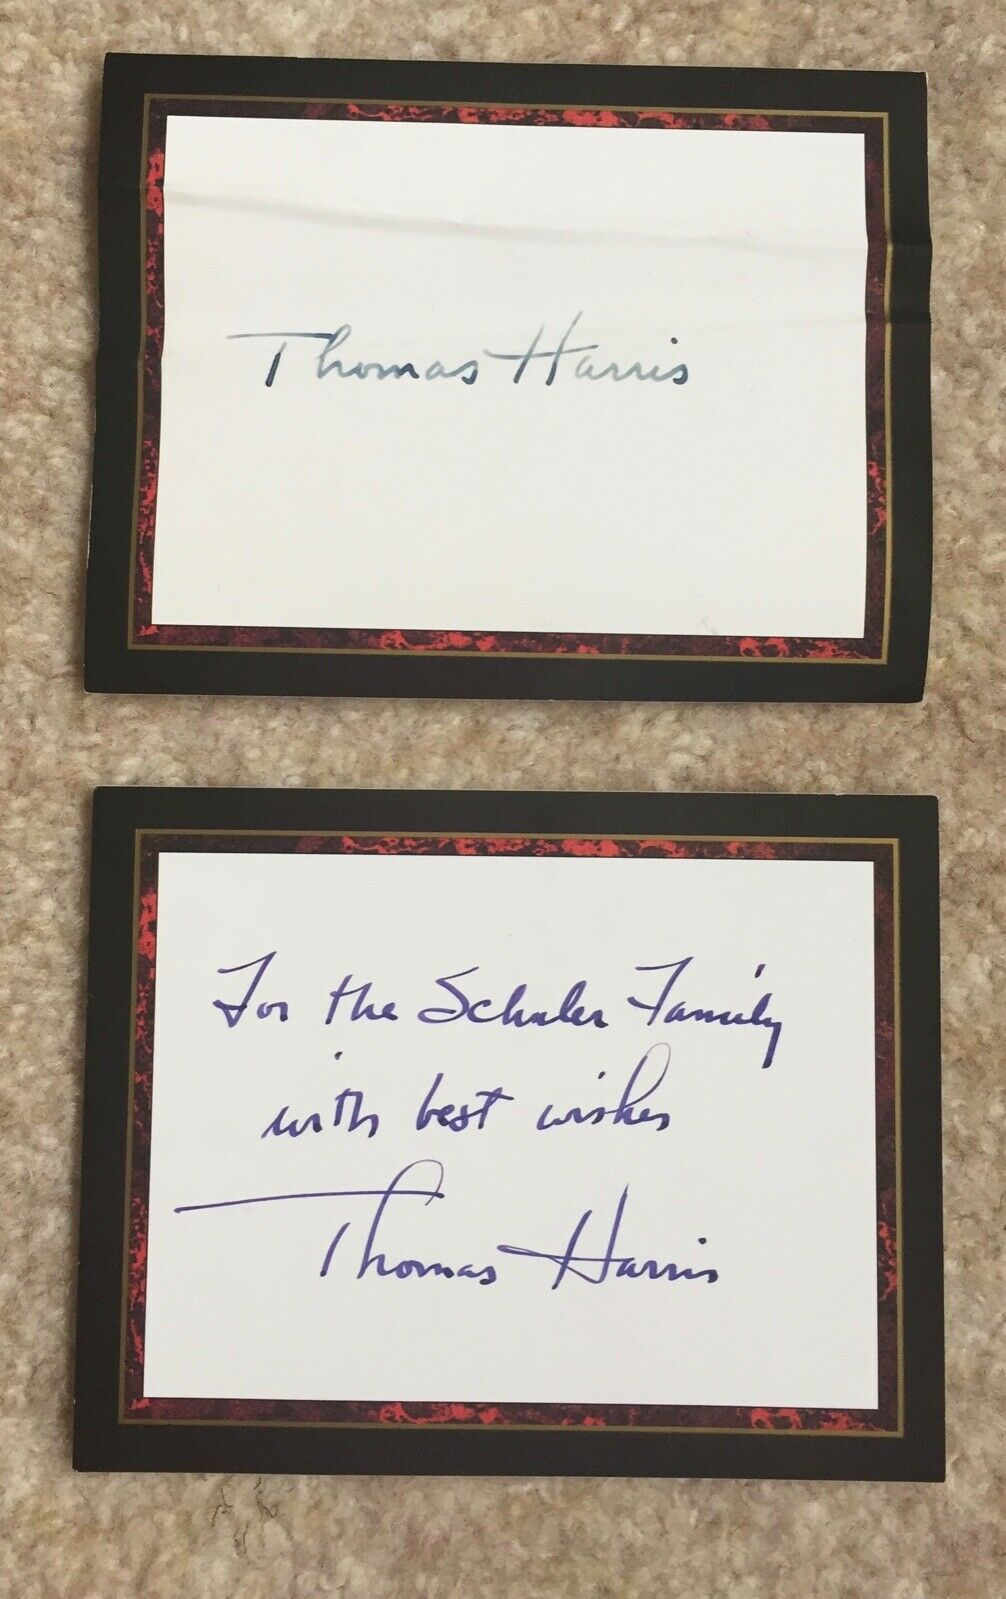 Thomas Harris
For the Schuler Family
with best wishes
Thomas Harris